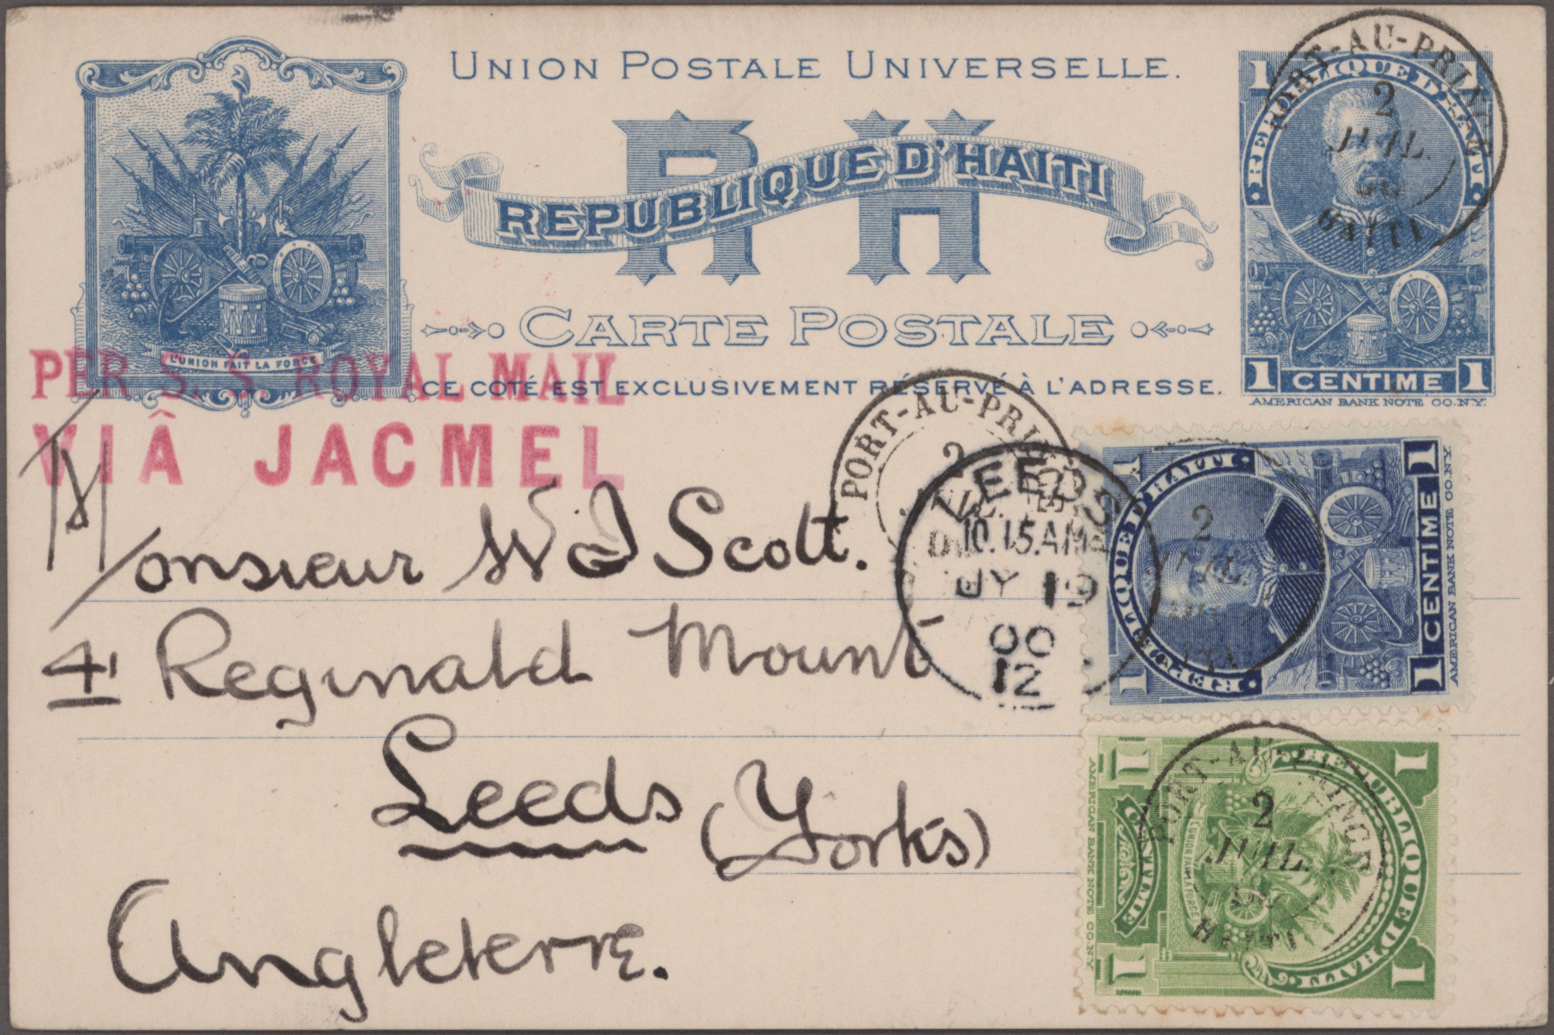 UNION POSTALE UNIVERSELLE.
RH
REPUBLIQUE D'HAITI
CARTE POSTALE
CE COTÉ EST EXCLUSIVEMENT RÉSERVÉ À L'ADRESSE.
L'UNION FAIT LA FORCE
REPUBLIQUE D'HAITI
1 CENTIME 1
AMERICAN BANK NOTE CO. N.Y.
PORT-AU-PRINCE
2
JUIL.
HAITI
PER S. S. ROYAL MAIL
VIÂ JACMEL
PORT-AU-PRIN
2
LEEDS
10.15 AM
JY 19
00
12
Monsieur W J Scott.
4 Reginald Mount
Leeds (Yorks)
Angleterre.
REPUBLIQUE D'HAITI
1 CENTIME 1
AMERICAN BANK NOTE CO. N.Y.
2
JUIL.
REPUBLIQUE D'HAITI
1 CENTIME 1
AMERICAN BANK NOTE CO. N.Y.
PORT-AU-PRINCE
2
JUIL.
HAITI